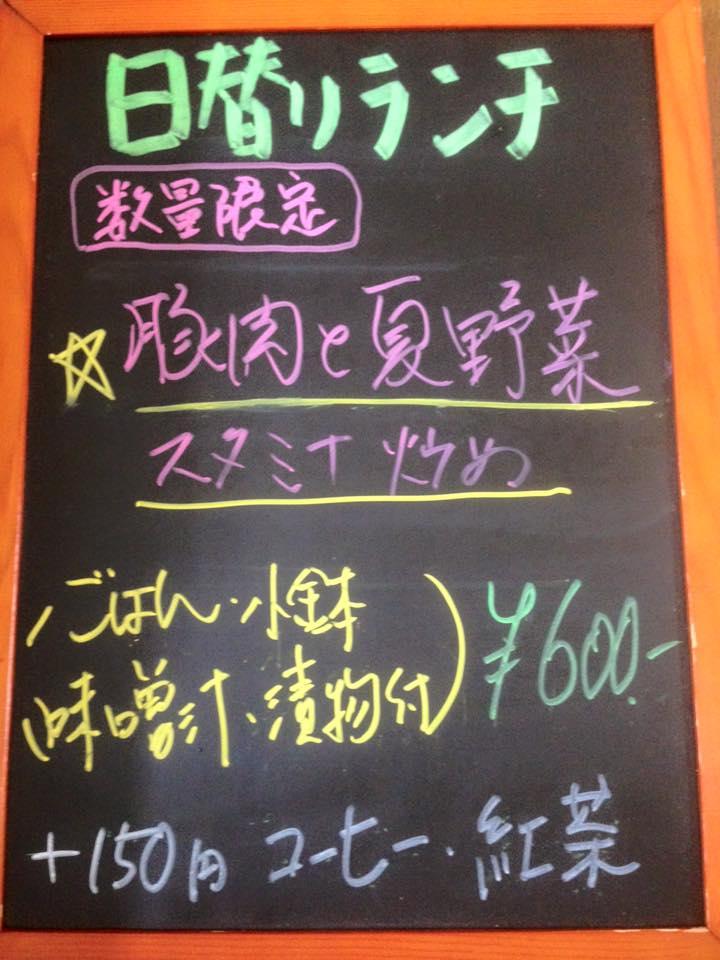 日替りランチ
数量限定
☆豚肉と夏野菜
スタミナ炒め
(ごはん・小鉢
味噌汁、漬物付)
¥600.-
+150円 コーヒー・紅茶